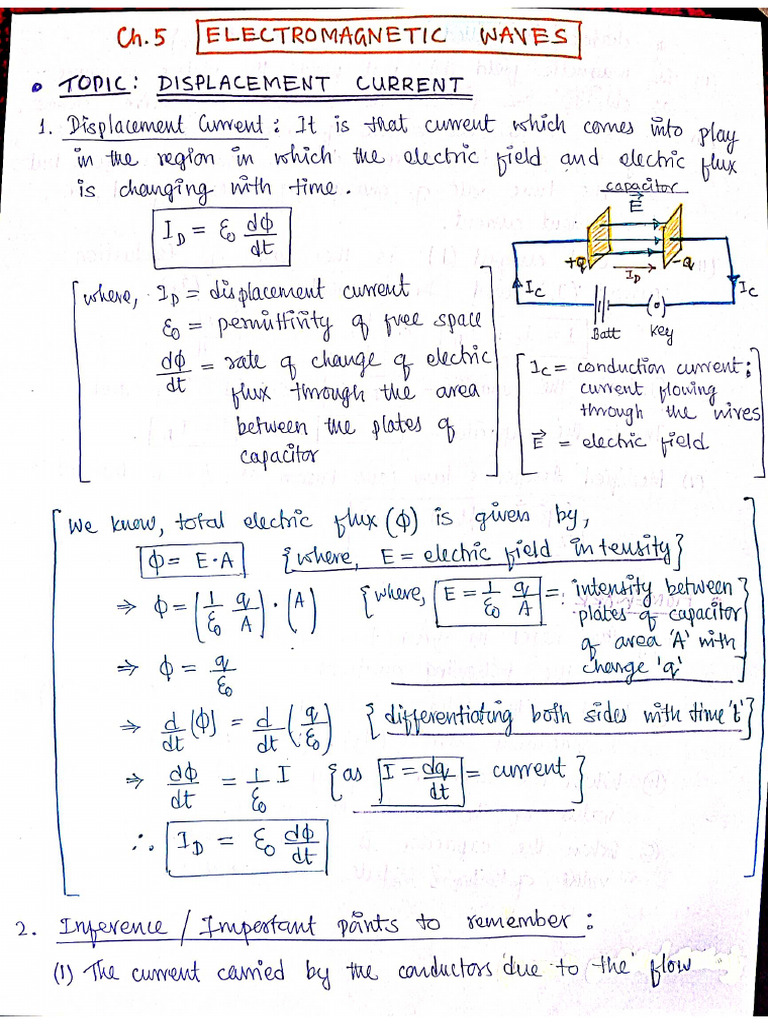 Ch.5 ELECTROMAGNETIC WAVES
• TOPIC: DISPLACEMENT CURRENT
1. Displacement Current: It is that current which comes into play
in the region in which the electric field and electric flux
is changing with time.
I_D = ε₀ dϕ/dt
capacitor
E⃗
+Q I_D -Q
I_C I_C
Batt Key
[where, I_D = displacement current
ε₀ = permittivity of free space
dϕ/dt = rate of change of electric
flux through the area
between the plates of
capacitor]
[I_C = conduction current;
current flowing
through the wires
E⃗ = electric field]
[We know, total electric flux (ϕ) is given by,
ϕ = E·A {where, E = electric field intensity}
⇒ ϕ = (1/ε₀ q/A)·(A) {where, E = 1/ε₀ q/A = intensity between
plates of capacitor
of area 'A' with
change 'q'}
⇒ ϕ = q/ε₀
⇒ d/dt (ϕ) = d/dt (q/ε₀) {differentiating both sides with time 't'}
⇒ dϕ/dt = 1/ε₀ I {as I = dq/dt = current}
∴ I_D = ε₀ dϕ/dt]
2. Inference / Important points to remember:
(1) The current carried by the conductors due to the flow